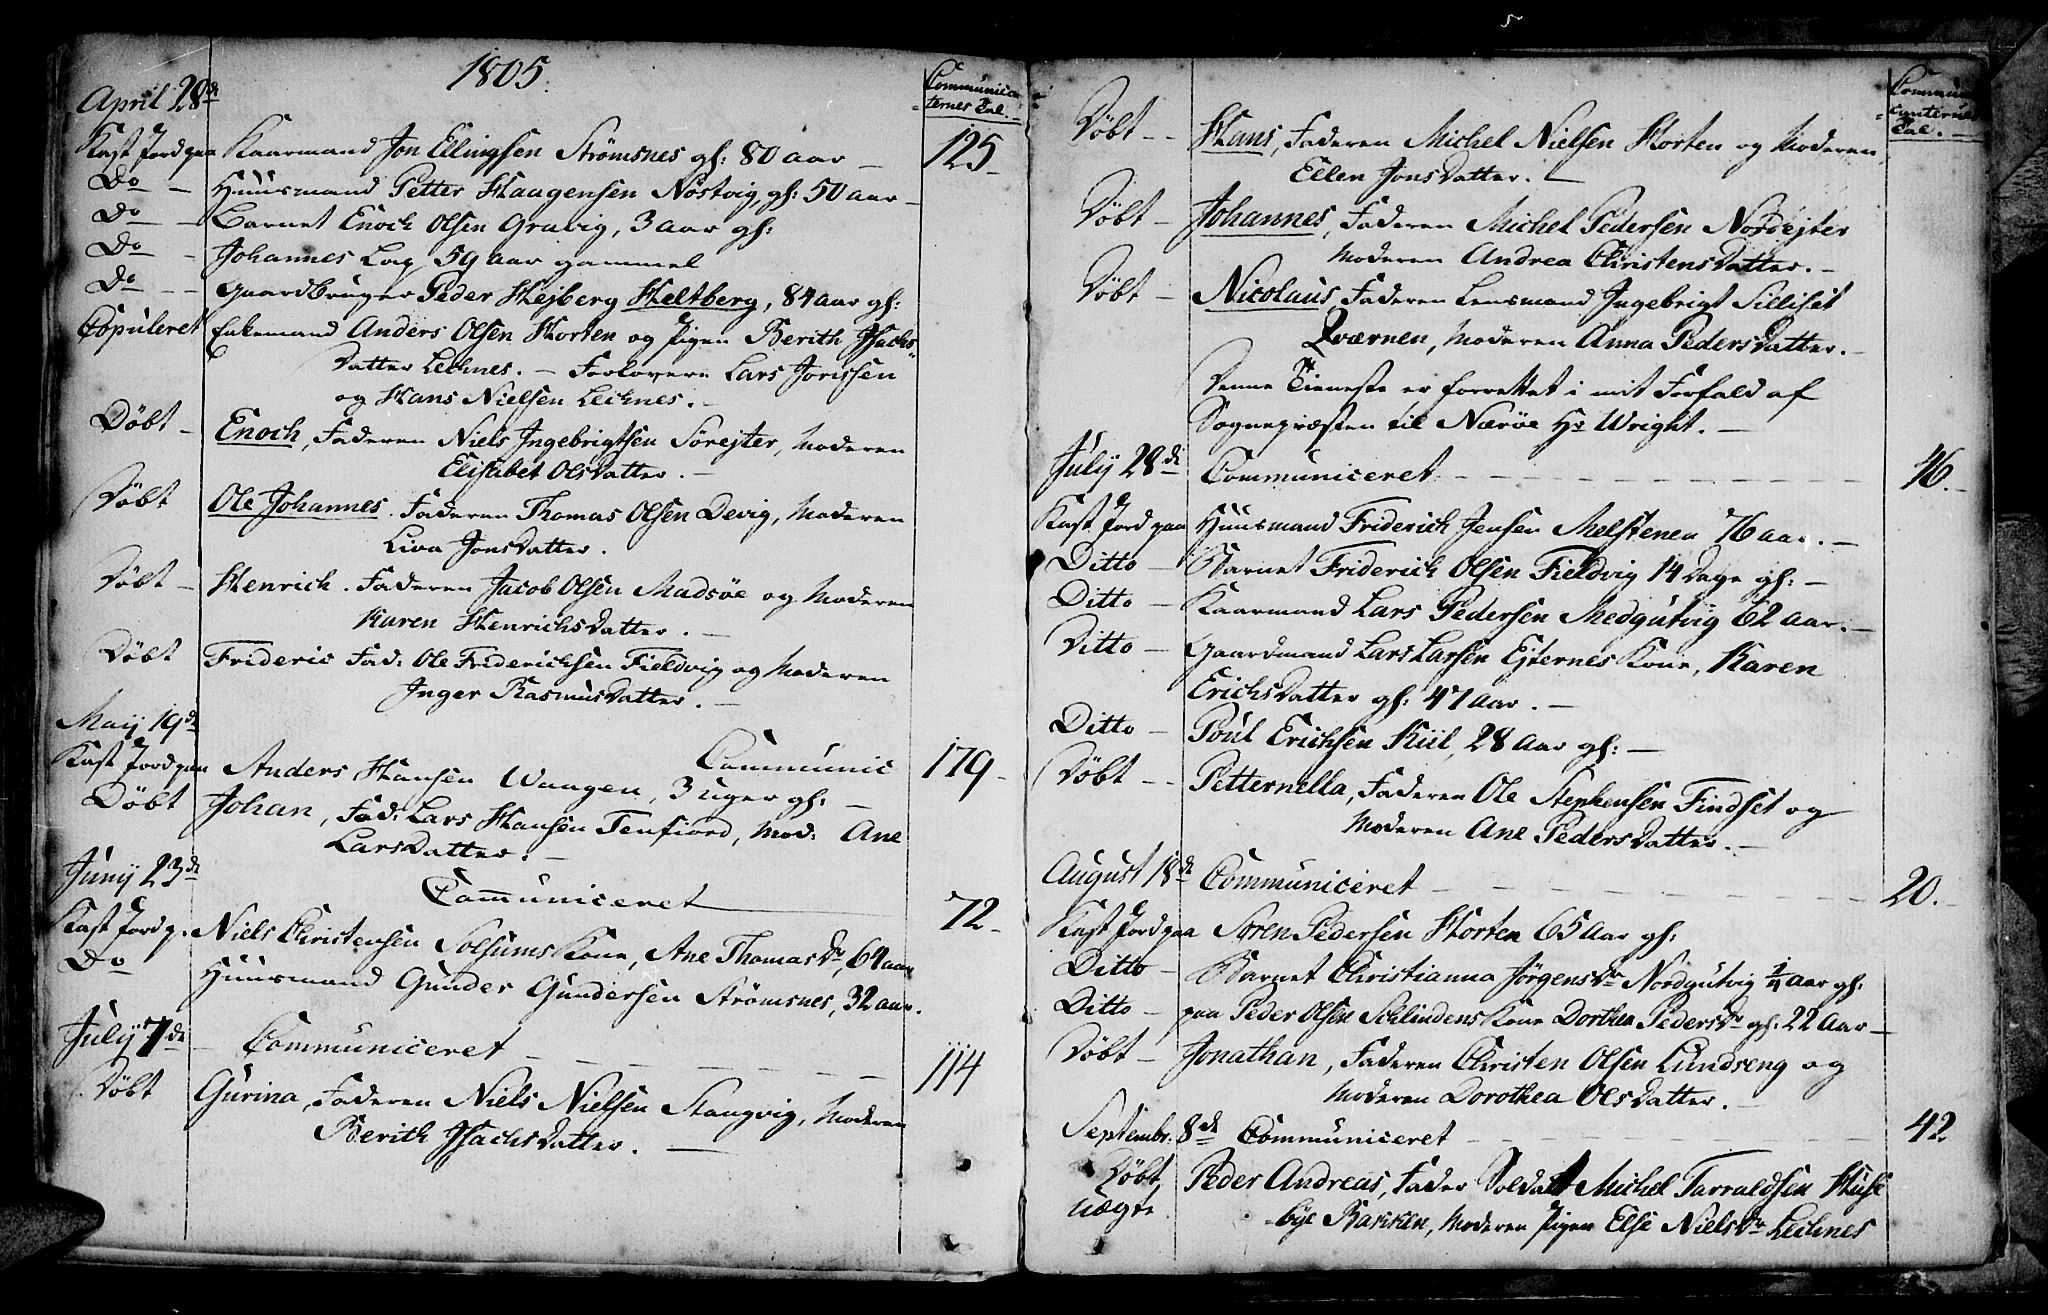 1805.
Communica-
ternes Tal.
April 28de
125
Kast Jord paa Kaarmand Jon Ellingsen Strömsnes gl: 80 aar —
Do — Huusmand Petter Haagensen Nöstvig, gl: 50 aar —
Do — Barnet Enoch Olsen Gravig, 3 aar gl:
Do — Johannes Lap 59 aar gammel
Do — Gaardbruger Peder Hejberg Heltberg, 84 aar gl:
Copuleret Enkemand Anders Olsen Horten og Pigen Berith Isachs-
Datter Lechnes. — Forlovere Lars Jorissen
og Hans Nielsen Lechnes. —
Döbt — Enoch, Faderen Niels Ingebrigtsen Sörejter, Moderen
Elisabet Olsdatter. —
Döbt Ole Johannes. Faderen Thomas Olsen Devig, Moderen
Liva Jonsdatter.
Döbt — Henrich. Faderen Jacob Olsen Madsöe og Moderen
Karen Henrichsdatter. —
Döbt Frideric Fad: Ole Friderichsen Fieldvig og Moderen
Inger Rasmusdatter. —
Maij 19de
Communic 179 —
Kast Jord paa Anders Hansen Waagen, 3 uger gl: —
Döbt Johan, Fad: Lars Hansen Tenfiord, Mod: Ane
Larsdatter. —
Junij 23de
Communiceret 72 —
Kast Jord p. Niels Christensen Solsums Kone, Ane Thomasdr, 64 aar
Do Huusmand Gunder Gundersen Strömsnes, 32 aar.
July 7de Communiceret — 114
Döbt Gurina, Faderen Niels Nielsen Stangvig, Moderen
Berith Isachsdatter. —
Communi-
canternes
Tal. —
Döbt — Hans, Faderen Michel Nielsen Horten og Moderen,
Ellen Jonsdatter. —
Döbt — Johannes, Faderen Michel Pedersen Nordejter
Moderen Andrea Christensdatter. —
Döbt — Nicolaus, Faderen Lensmand Ingebrigt Silliset
Qværnen, Moderen Anna Pedersdatter. —
Denne Tieneste er forrettet i mit Forfald af
Sognepræsten til Næröe Hr Wright. —
July 28de Communiceret — 46. —
Kast Jord paa Huusmand Friderich Jensen Melstenen 76 aar. —
Ditto — Barnet Friderich Olsen Fieldvig 14 Dage gl: —
Ditto — Kaarmand Lars Pedersen Medgutvig 62 aar. —
Ditto — Gaardmand Lars Larsen Ejternes Kone, Karen
Erichsdatter gl: 47 aar. —
Ditto — Poul Erichsen Kiil, 28 aar gl: —
Döbt — Petternella, Faderen Ole Stephensen Findset og
Moderen Ane Pedersdatter. —
August 18de Communiceret — 20. —
Kast Jord paa Sören Pedersen Horten 65 aar gl:
Ditto — Barnet Christianna Jörgensdr Nordgutvig 1/4 aar gl:
Ditto — paa Peder Olsen Schlindens Kone Dorthea Pedersdr gl: 22 aar —
Döbt — Jonathan, Faderen Christen Olsen Lundseng og
Moderen Dorothea Olsdatter. —
Septembr: 8de Communiceret — 42
Döbt Peder Andreas, Fader Soldat Michel Tarraldsen Huse-
uægte bye Bakken, Moderen Pigen Else Nielsdr Lechnes